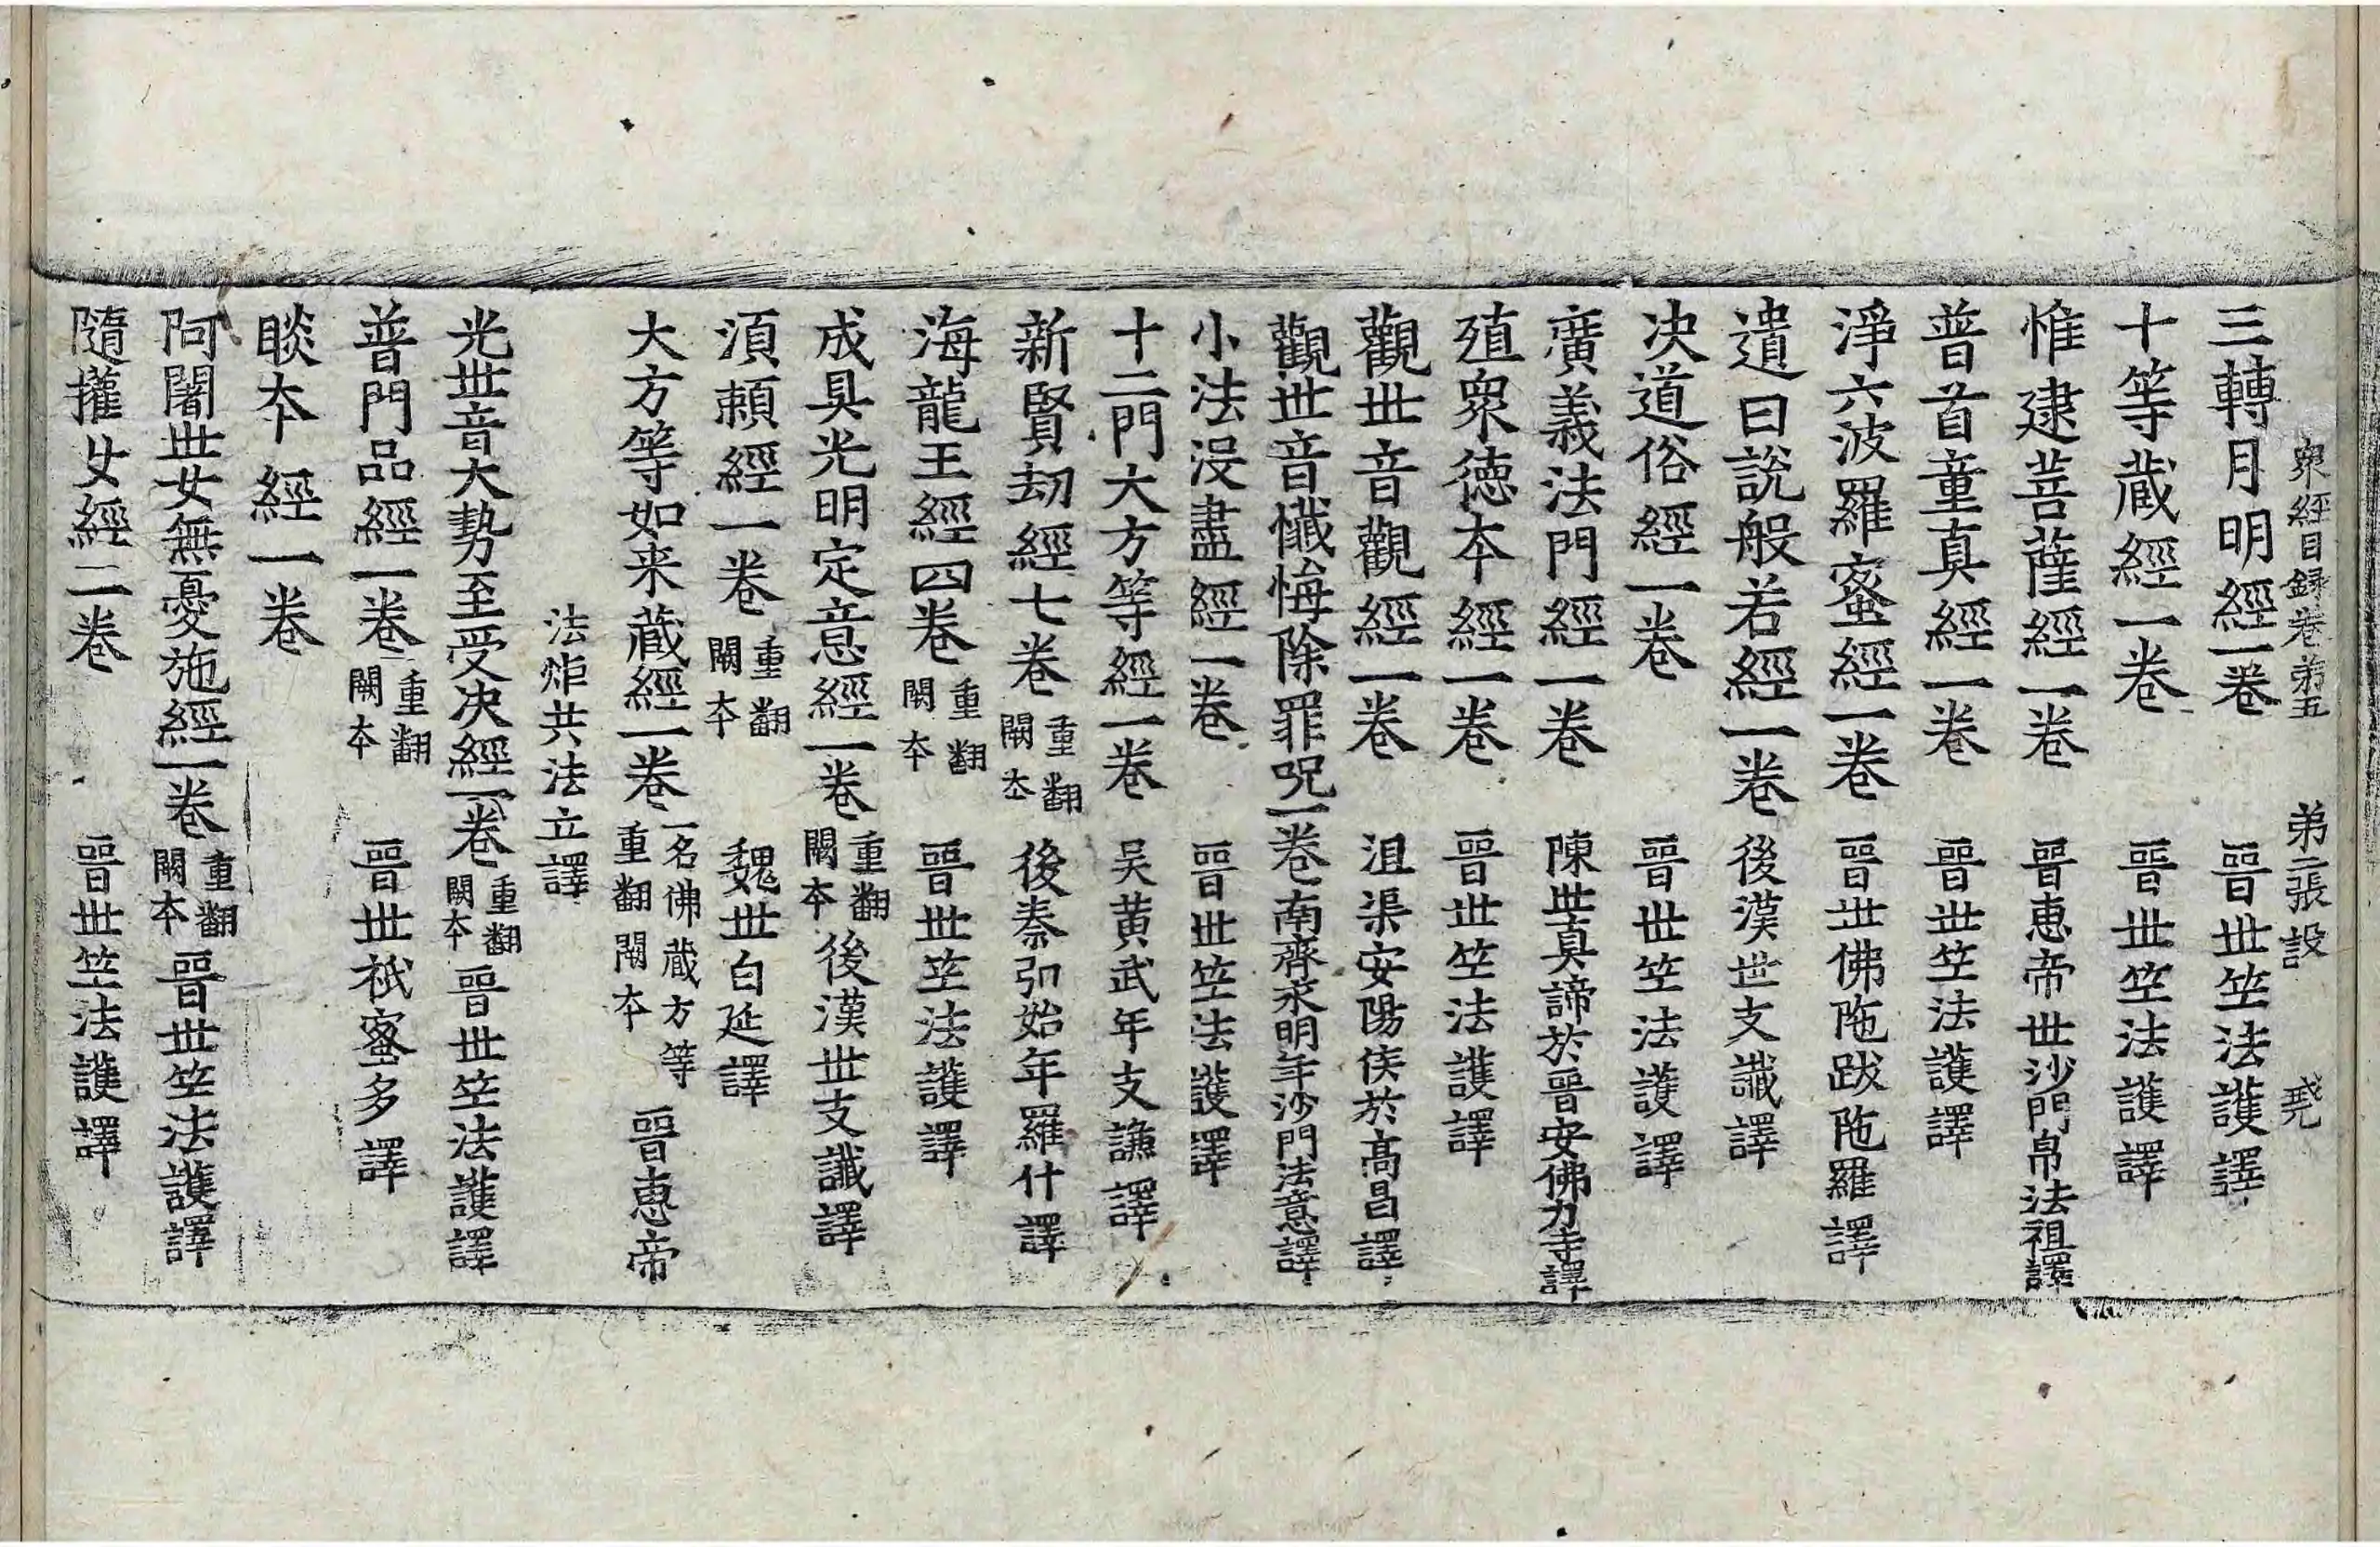 衆經目録卷第五 第二張設
三轉月明經一卷 晉世竺法護譯
十等蔵經一卷 晉世竺法護譯
惟逮菩薩經一卷 晉惠帝世沙門帛法祖譯
普首童真經一卷 晉世竺法護譯
淨六波羅蜜經一卷 晉世佛陁跋陁羅譯
遺日說般若經一卷 後漢世支讖譯
决道俗經一卷 晉世竺法護譯
廣義法門經一卷 陳世真諦於晉安佛力寺譯
殖衆徳本經一卷 晉世竺法護譯
觀世音觀經一卷 沮渠安陽侯於髙昌譯
觀世音懺悔除罪呪一卷南齊永明年沙門法意譯
小法没盡經一卷 晉世竺法護譯
十二門大方等經一卷 吴黄武年支謙譯
新賢劫經七卷 重翻闕本 後秦弘始年羅什譯
海龍王經四卷 重翻闕本 晉世竺法護譯
成具光明定意經一卷 重翻闕本 後漢世支讖譯
湏賴經一卷 重翻闕本 魏世白延譯
大方等如来蔵經一卷 一名佛蔵方等重翻闕本 晉恵帝
法炬共法立譯
光世音大勢至受决經一卷 重翻闕本 晉世竺法護譯
普門品經一卷 重翻闕本 晉世祇蜜多譯
睒本經一卷
阿闍世女無憂施經一卷 重翻闕本 晉世竺法護譯
隨權女經二卷 晉世竺法護譯